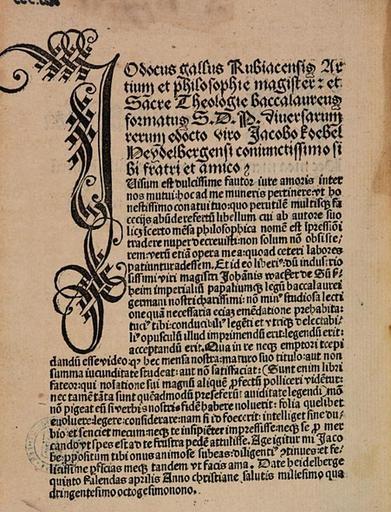 Iodocus gallus Rubiacensis Ar
tium et philosophie magister: et
Sacre Theologie baccalaureus
formatus S. D. P. viuersarum
rerum edocto viro Jacobo koebel
Heydelbergensi coniunctissimo si
bi fratri et amico ⁊
Uisum est dulcissime fautor iure amoris inter
nos mutui: hoc ad me muneris pertinere: vt ho
nestissimo conatui tuo: quo perutilē multisqȝ fa
cecijs abūde refertū libellum cui ab autore suo
licȝ īcerto mēsa philosophica nomē est īpressiōi
tradere nuper decreuisti: non solum nō obsistē
rem: verū etiā opera mea: quoad ceteri labores
patiunt̄ adessem. Et id eo liberiꝰ: qđ industrio
lissimi viri magistri Johānis wacker de Sūß
heim imperialiū papaliumqȝ legū baccalaurei
germani nostri charissimi: nō minꝰ studiosa lecti
one quā necessaria eciaȝ emēdatione prehabita:
tuciꝰ tibi: conducibiliꝰ legēti et vtriqȝ delectabi-
liꝰ opusculū illud imprimendū erit: legendū erit:
acceptandū erit. Qua in re neqȝ emptori ecepi
dandū esse video: qꝫ hec mensa nostra: maturo suo titulo: aut non
summa iucunditate studeat: aut nō satisfaciat: Sunt enim libri
fateor: qui nō latione sui magnū aliquē ꝓfectū polliceri vidētur:
nec tamē tā ta sunt quēadmodū preseferūt: auditate legendi mō
nō pigeat eū si verbis nostris fidē habere noluerit: folia quelibet
euoluere: legere: considerare: nam si id fecerit: intelliget sine du-
bio et senciet mecum neqȝ te insipiēter impressisse: neqȝ se ꝓ mer
candoȝ vt spes est a d re frustra pedē attulisse. Age igitur mi Jaco
be: ꝓpositum tibi onus animose subeas: diligentiꝰ ꝯtinues et fe-
licissime ꝑficias meqȝ tandem vt facis ama. Date heidelberge
quinto kalendas aprilis Anno christiane salutis millesimo qua
dringentesimo octogesimonono.